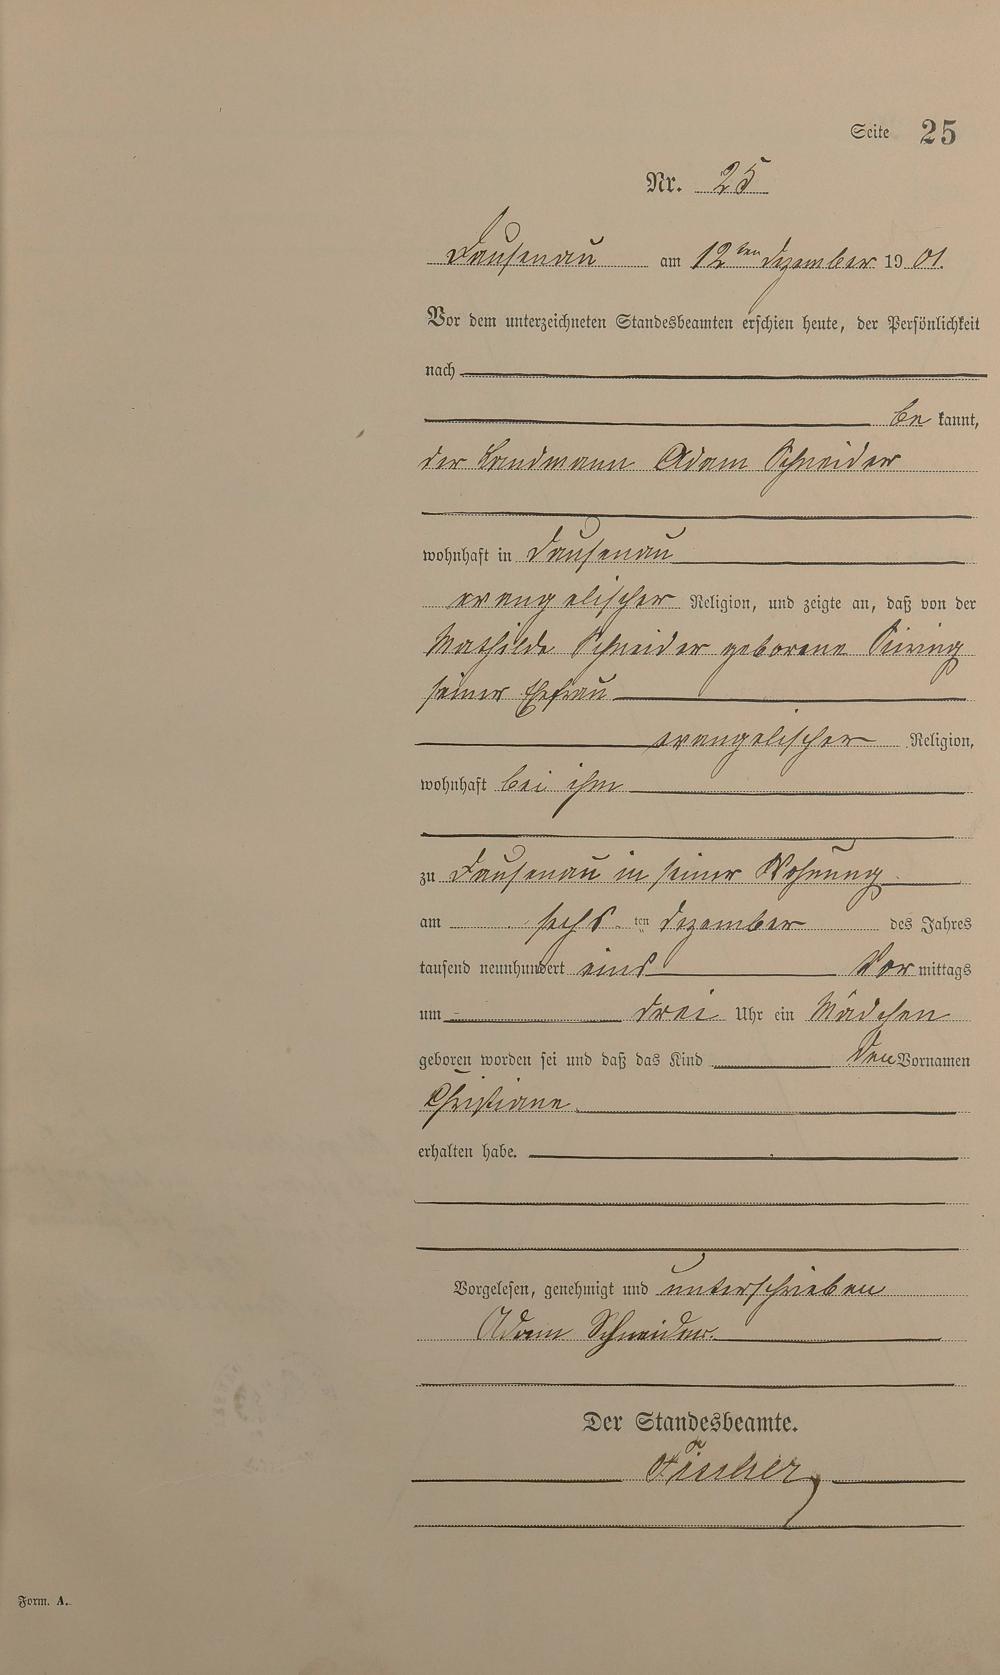 Seite 25
Nr. 25
Dausenau am 12ten Dezember 1901.
Vor dem unterzeichneten Standesbeamten erschien heute, der Persönlichkeit
nach
be kannt,
der Landmann Adam Schneider
wohnhaft in Dausenau
evangelischer Religion, und zeigte an, daß von der
Mathilde Schneider geborene
seiner Ehefrau
evangelischer Religion,
wohnhaft bei ihm
zu Dausenau in seiner Wohnung
am sechs ten Dezember des Jahres
tausend neunhundert eins Vor mittags
um drei Uhr ein Mädchen
geboren worden sei und daß das Kind den Vornamen
Christiane
erhalten habe.
Vorgelesen, genehmigt und unterschrieben
Adam Schneider.
Der Standesbeamte.
Form. A.